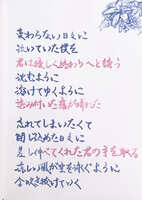 変わらない日々に
泣いていた僕を
君は優しく終わりへと誘う
沈むように
溶けてゆくように
染み付いた霧が晴れた
忘れてしまいたくて
閉じ込めた日々に
差し伸べてくれた君の手を取る
涼しい風が空を泳ぐように
今吹き抜けていく